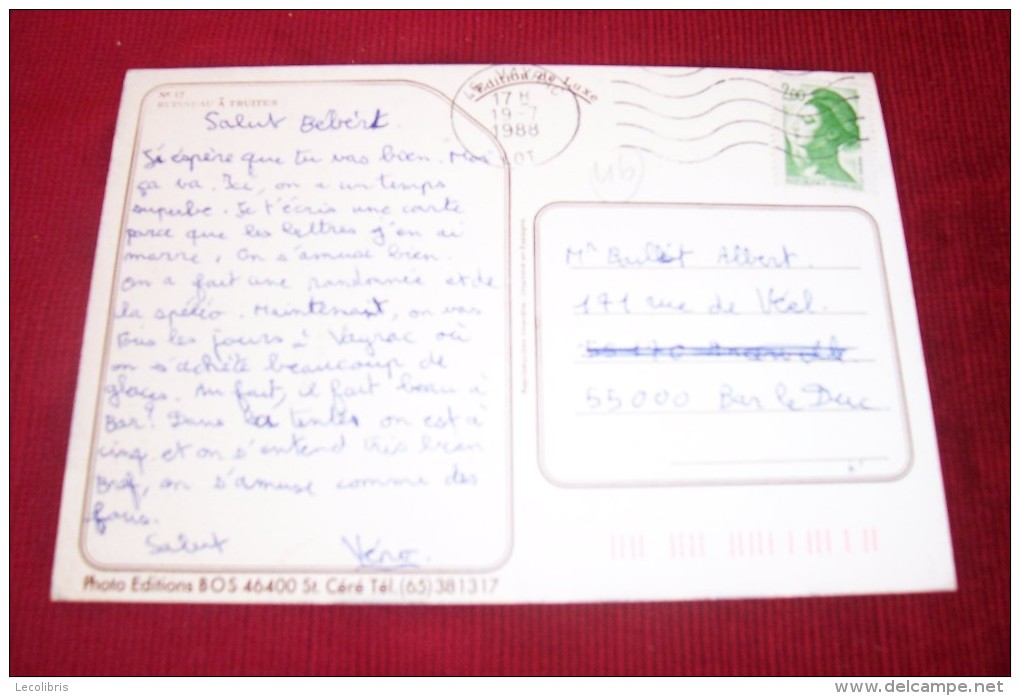 N° 17
RUISSEAU À TRUITES
Salut Bébért.
J'éspère que tu vas bien. Moi
ça va. Ici, on a un temps
superbe. Je t'écris une carte
parce que les lettres j'en ai
marre. On s'amuse bien.
On a fait une randonnée et de
la spéléo. Maintenant, on vas
tous les jours à Vayrac où
on s'achète beaucoup de
glaces. Au fait, il fait beau à
Bar? Dans la tentes on est à
cinq et on s'entend très bien
Bref, on s'amuse comme des
fous.
Salut
Véro.
Photo Editions BOS 46400 St. Céré Tél.(65)381317
Edition de Luxe
17 H
19-7
1988
LOT
46
2,00
Mr Bullot Albert.
171 rue de Véel.
55000 Bar le Duc
Lecolibris
www.delcampe.net